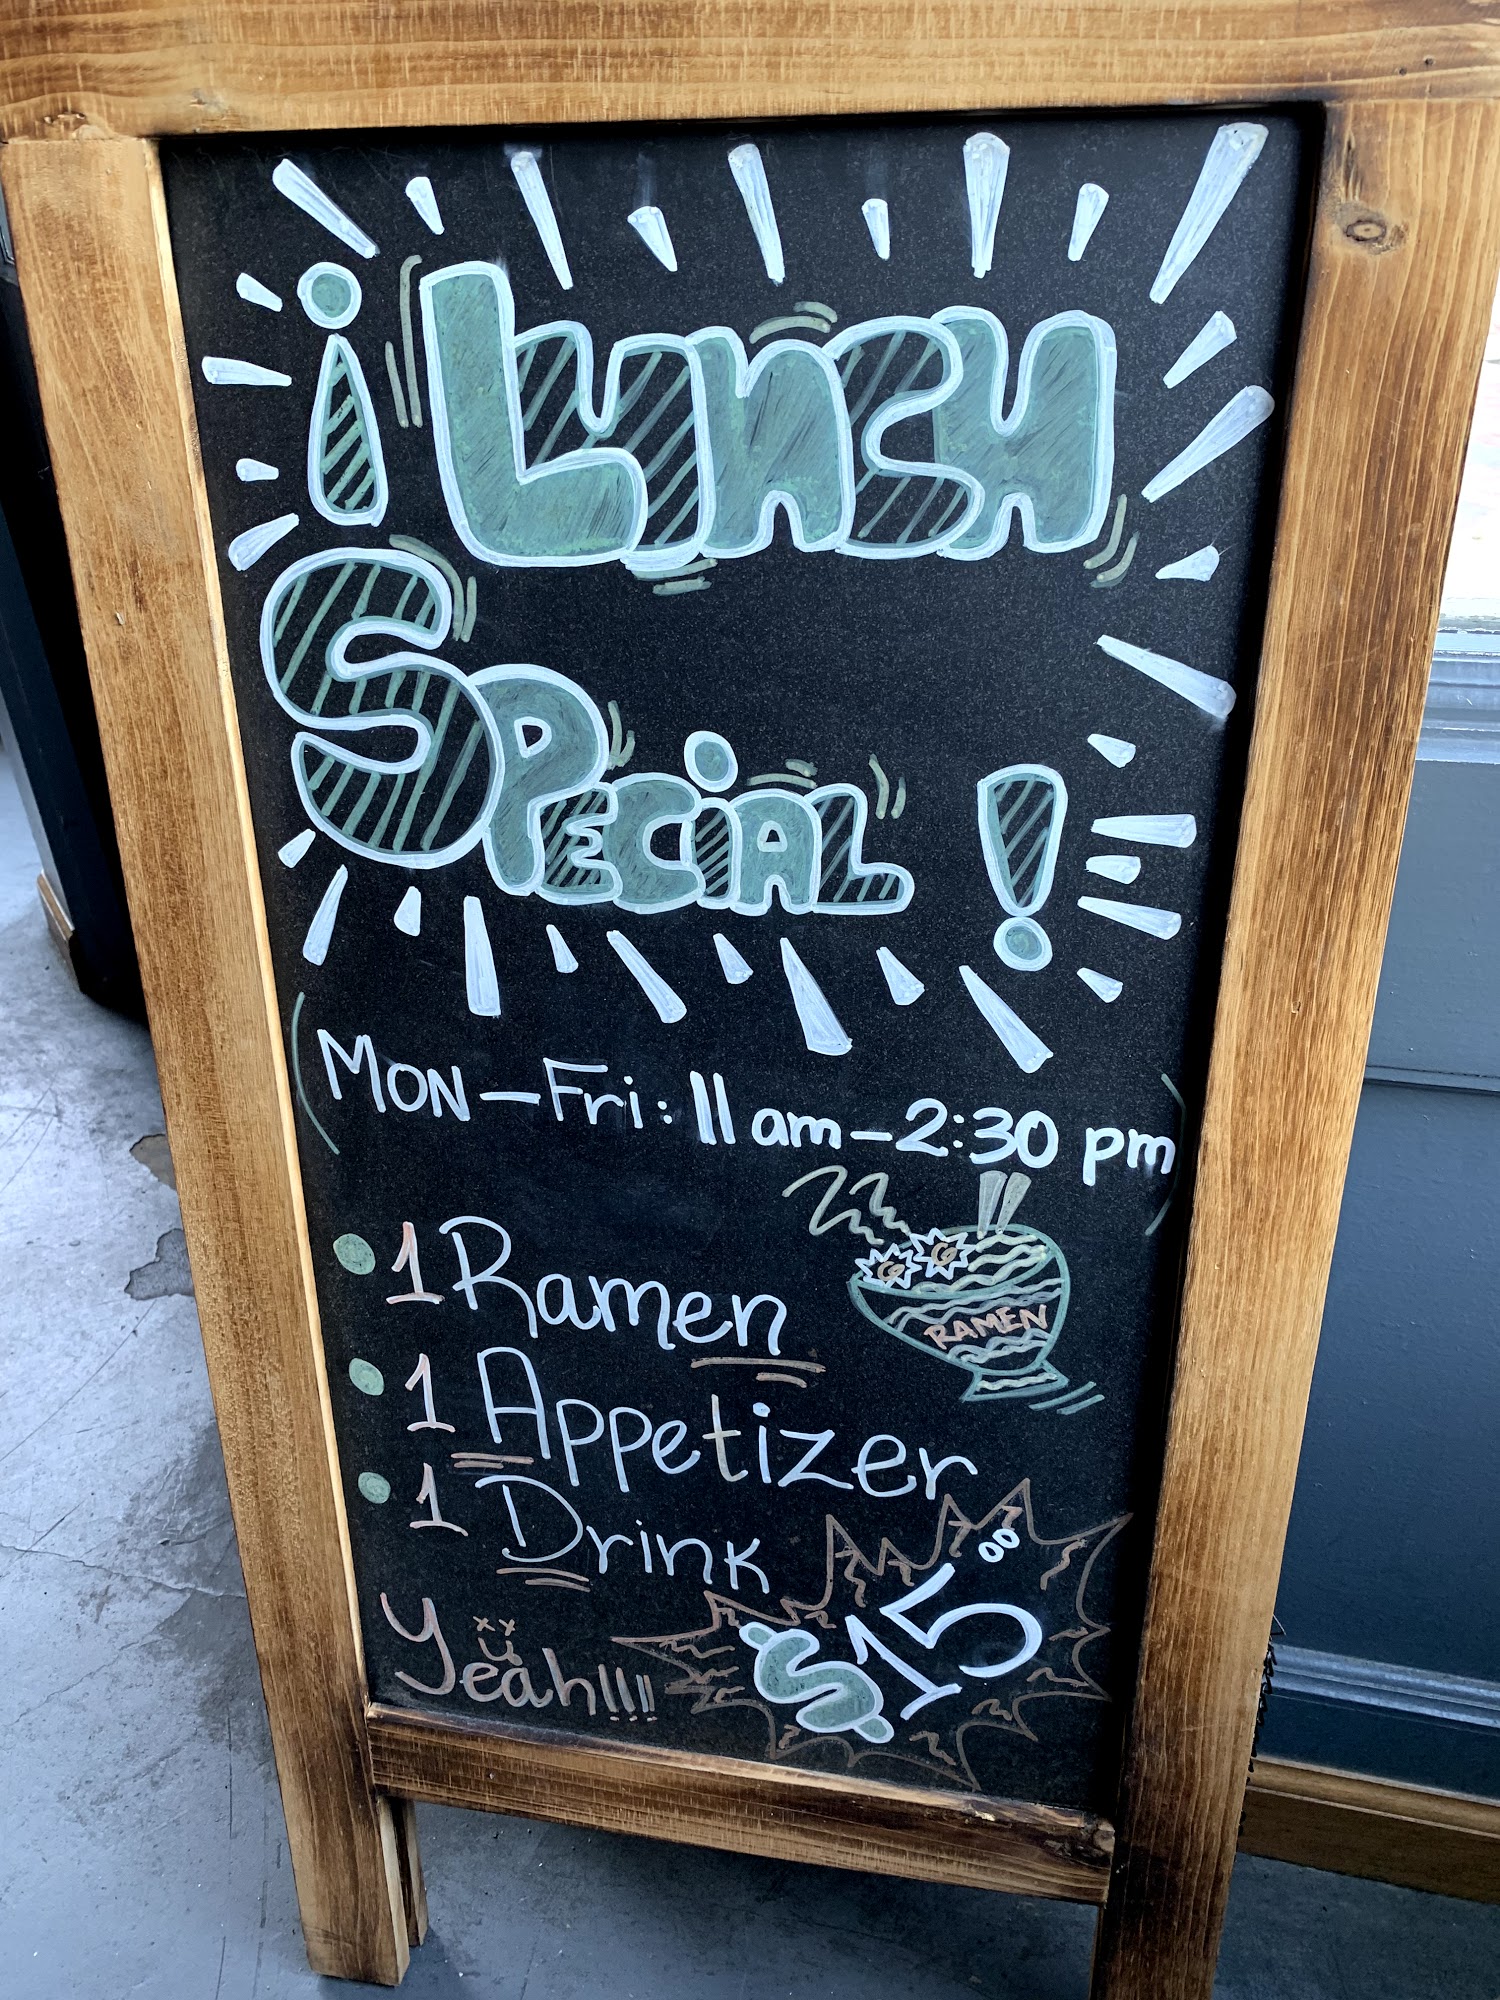 ¡ LUNCH
SPECiAL !
MON-Fri: 11 am-2:30 pm
1 Ramen
RAMEN
1 Appetizer
1 Drink
$15 00
Yeah!!!!